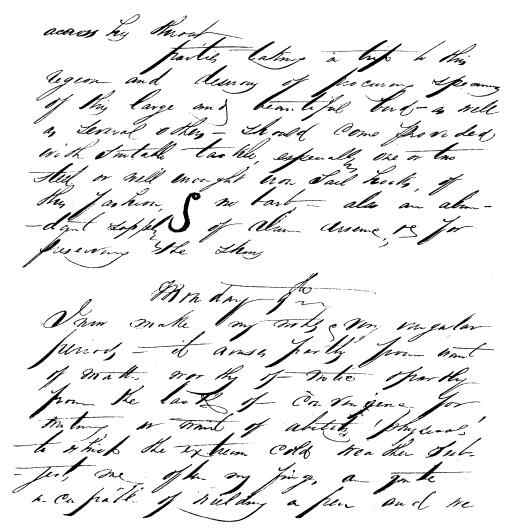 across his throat
Parties taking a trip to this
region and desirous of procuring specimens
of this large and beautiful bird – as well
as several others – should come provided
with suitable tackle, especially one or two
steel or well wrought iron Sail hooks, of
this fashion, no barb – also an abun-
-dant supply of alum arsenic, &c for
preserving the skins
Monday 9th
I now make my notes @ very irregular
periods – it arises partly from want
of matter worthy of notice & partly
from the lack of convenience for
writing or want of ability 'physical'
to which the extreme cold weather sub-
-jects me – often my fingers are quite
incapable of wielding a pen and we